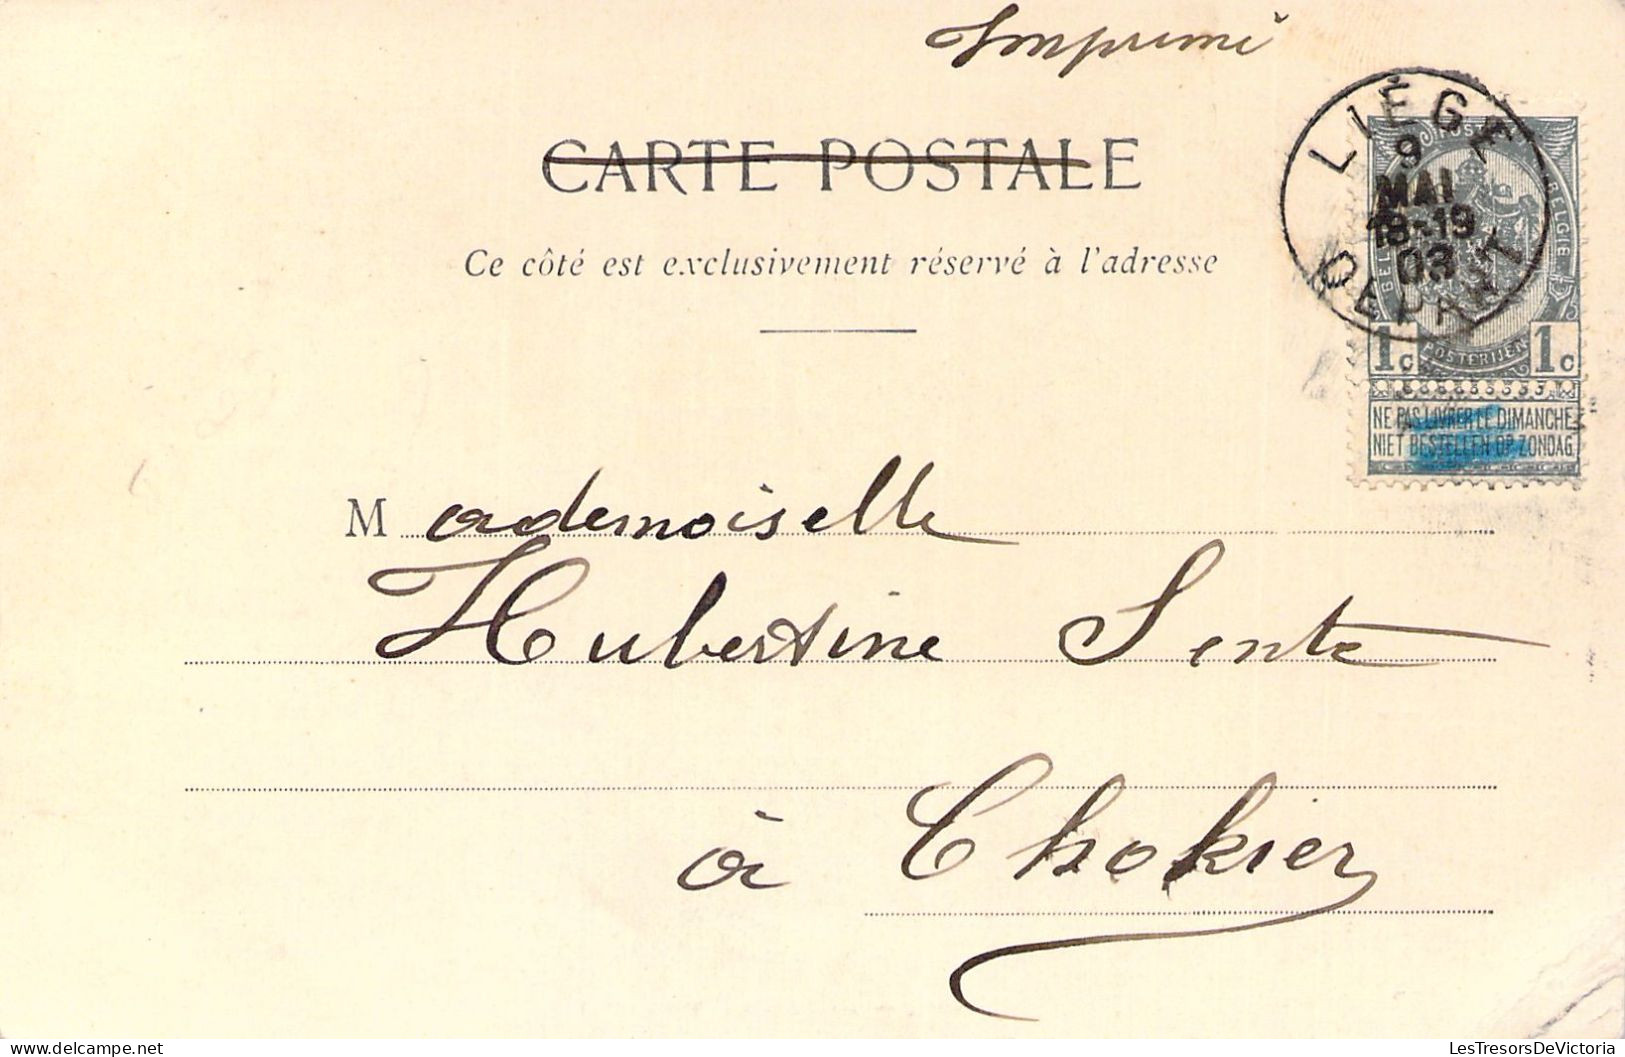 Imprimé
CARTE POSTALE
Ce côté est exclusivement réservé à l'adresse
LIÉGE
9
MAI
18-19
03
DEPART
BELGIE
1c
POSTERIJEN
1c
NE PAS LIVRER LE DIMANCHE
NIET BESTELLEN OP ZONDAG
Mademoiselle
Hubertine Sente
à Chokier
LesTresorsDeVictoria